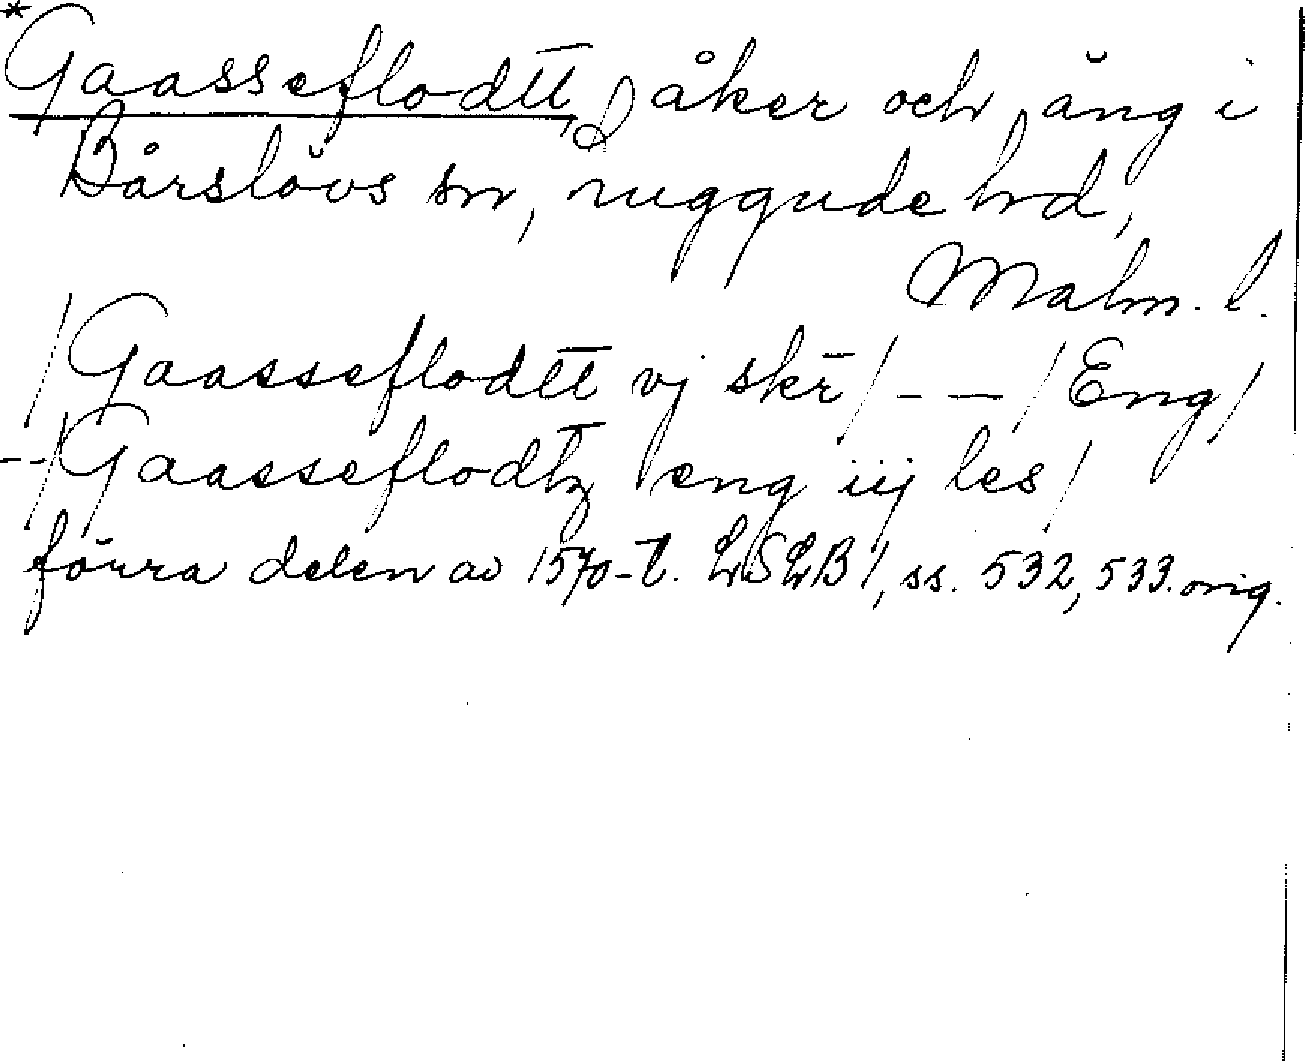 *Gaasseflodtt, åker och äng i
Bårslövs sn, ruggude hd,
Malm. l.
/Gaasseflodtt vj skr̄/ - - /Eng/
--/Gaasseflodtz eng iij les/
förra delen av 1570-t. LSLB 1, ss. 532, 533. orig.